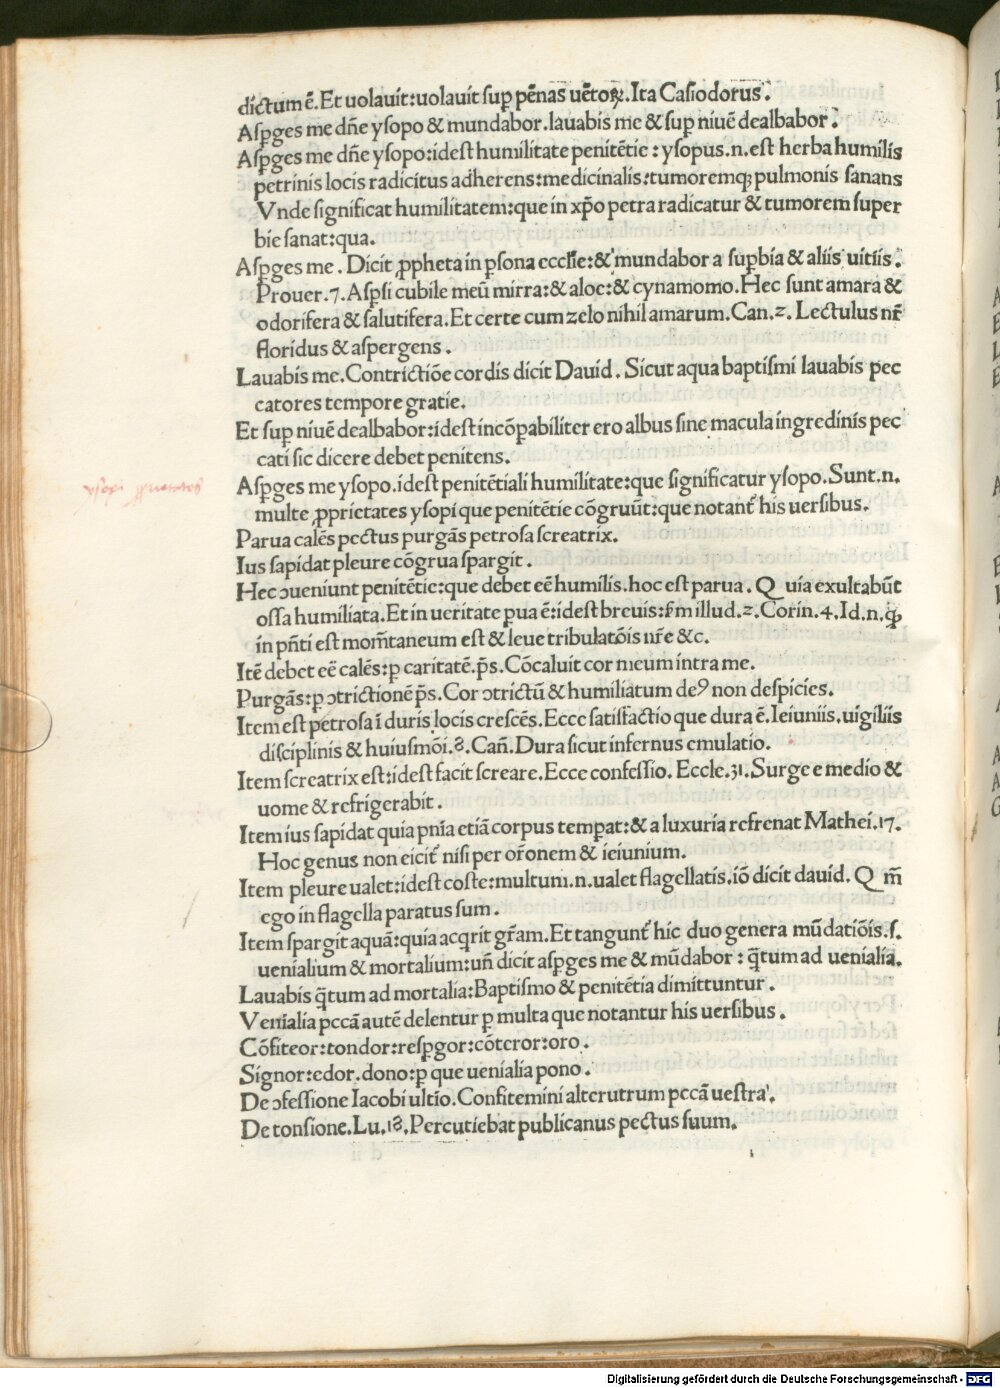 dictum ē. Et uolauit: uolauit sup pēnas uētoꝝ. Ita Casiodorus.
Aspges me dñe ysopo & mundabor. lauabis me & sup niuē dealbabor.
Aspges me dñe ysopo: idest humilitate penitētie: ysopus .n. est herba humilis
petrinis locis radicitus adherens: medicinalis: tumoremqꝫ pulmonis sanans
Vnde significat humilitatem: que in xp̄o petra radicatur & tumorem super
bie sanat: qua.
Aspges me. Dicit ꝓpheta in psona ecclīe: & mundabor a supbia & aliis uitiis.
Prouer. 7. Aspsi cubile meū mirra: & aloe: & cynamomo. Hec sunt amara &
odorifera & salutifera. Et certe cum zelo nihil amarum. Can. 2. Lectulus nr̄
floridus & aspergens.
Lauabis me. Contrictiōe cordis dicit Dauid. Sicut aqua baptismi lauabis pec
catores tempore gratie.
Et sup niuē dealbabor: idest incōpabiliter ero albus sine macula ingredinis pec
cati sic dicere debet penitens.
ysopi ꝓprietates
Aspges me ysopo. idest penitētiali humilitate: que significatur ysopo. Sunt .n.
multe ꝓprietates ysopi que penitētie cōgruūt: que notant̄ his uersibus.
Parua calēs pectus purgās petrosa screatrix.
Ius sapidat pleure cōgrua spargit.
Hec ꝯueniunt penitētie: que debet eē humilis. hoc est parua. Q uia exultabūt
ossa humiliata. Et in ueritate pua ē: idest breuis: s̄m illud. 2. Corin. 4. Id .n. qꝫ
in pñti est mom̄taneum est & leue tribulatōis nr̄e &c.
Itē debet eē calēs: p caritatē. p̄s. Cōcaluit cor meum intra me.
Purgās: p ꝯtrictionē p̄s. Cor ꝯtrictū & humiliatum deꝰ non despicies.
Item est petrosa ī duris locis crescēs. Ecce satisfactio que dura ē. Ieiuniis. uigiliis
disciplinis & huiusmōi. 8. Cañ. Dura sicut infernus emulatio.
Item screatrix est: idest facit screare. Ecce confessio. Eccle. 31. Surge e medio &
uome & refrigerabit.
Item ius sapidat quia pnīa etiā corpus tempat: & a luxuria refrenat Mathei. 17.
Hoc genus non eicit̄ nisi per or̄onem & ieiunium.
Item pleure ualet: idest coste: multum .n. ualet flagellatis. iō dicit dauid. Q m̄
ego in flagella paratus sum.
Item spargit aquā: quia acqrit gr̄am. Et tangunt̄ hic duo genera mūdatiōis. s.
uenialium & mortalium: uñ dicit aspges me & mūdabor: q̄tum ad uenialia.
Lauabis q̄tum ad mortalia: Baptismo & penitētia dimittuntur.
Venialia pccā autē delentur p multa que notantur his uersibus.
Cōfiteor: tondor: respgor: cōteror: oro.
Signor: edor. dono: p que uenialia pono.
De ꝯfessione Iacobi ultīo. Confitemini alterutrum pccā uestra.
De tonsione. Lu. 18. Percutiebat publicanus pectus suum.
Digitalisierung gefördert durch die Deutsche Forschungsgemeinschaft - DFG